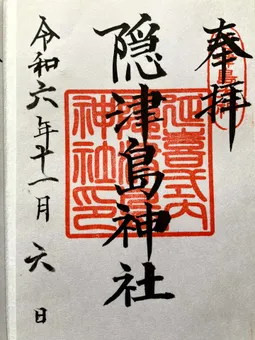 奉拝
隠津島神社
令和六年十一月六日
延喜式内
神社印